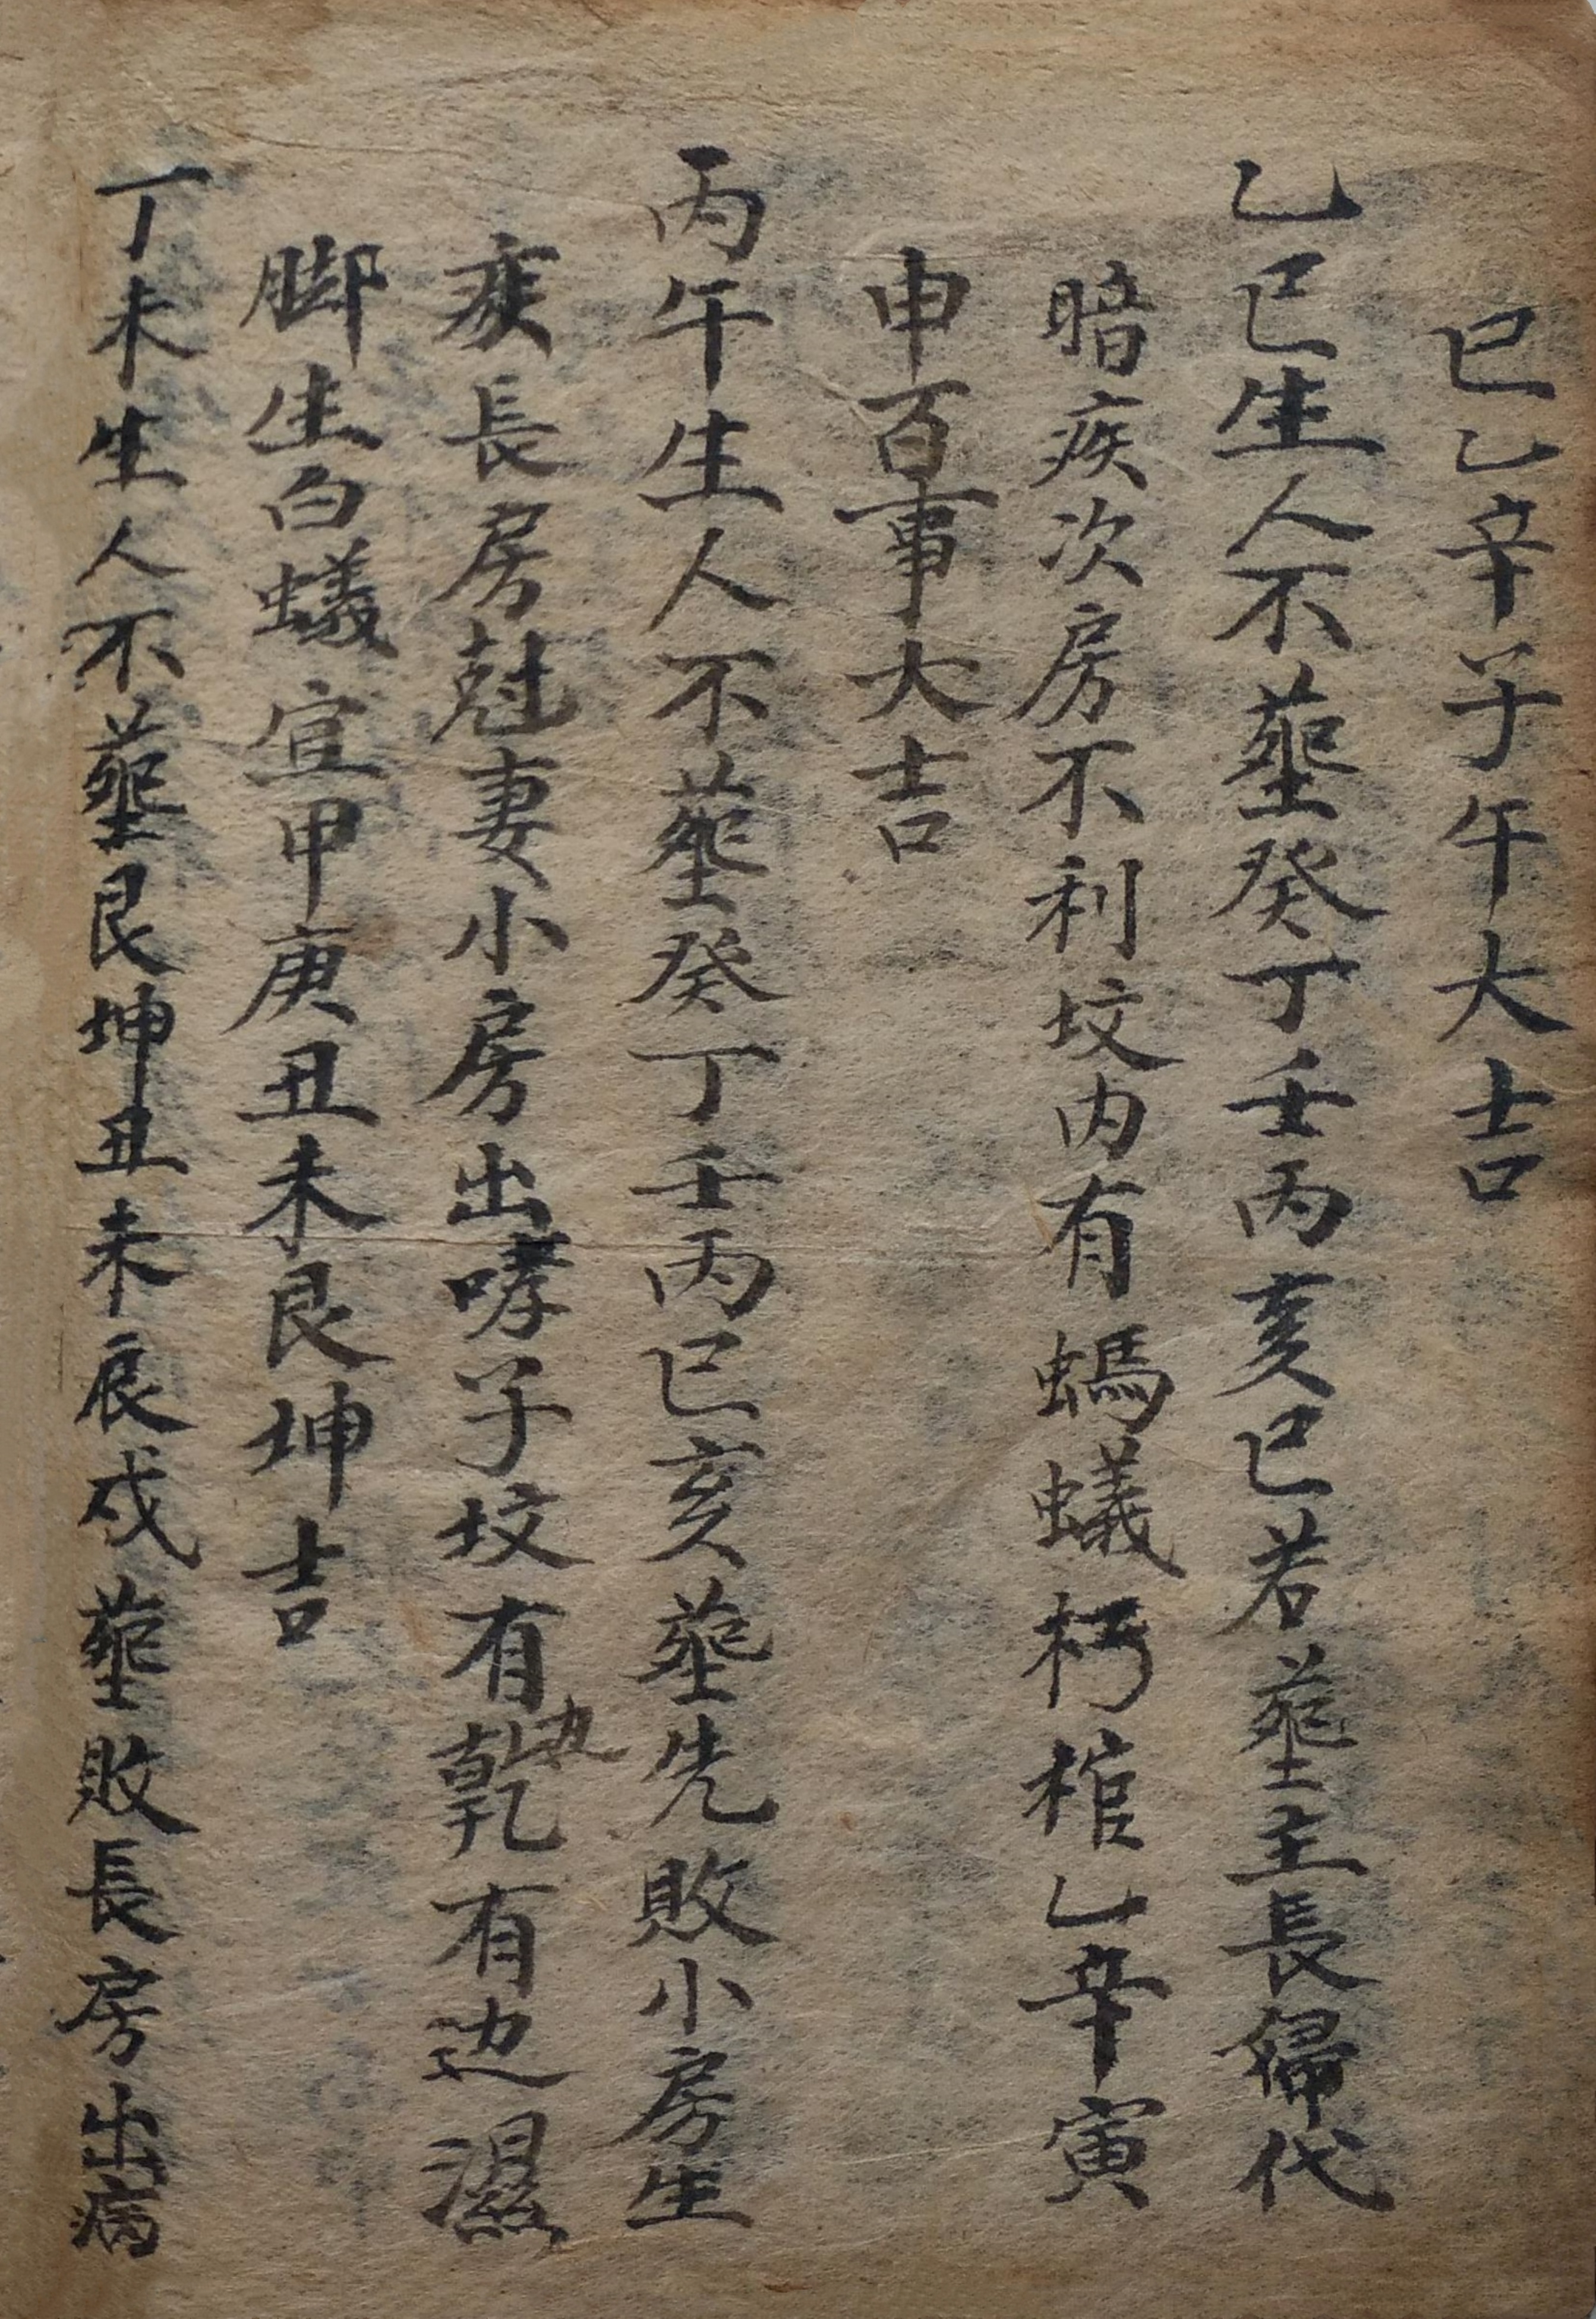 巳乙辛子午大吉
乙巳生人不塟癸丁壬丙亥巳若塟主長婦代
暗疾次房不利坟内有螞蟻朽棺乙辛寅
申百事大吉
丙午生人不塟癸丁壬丙巳亥塟先敗小房生
疾長房尅妻小房出哮子坟有边乾有边濕
脚生白蟻宜甲庚丑未艮坤吉
丁未生人不塟艮坤丑未辰戌塟敗長房出病